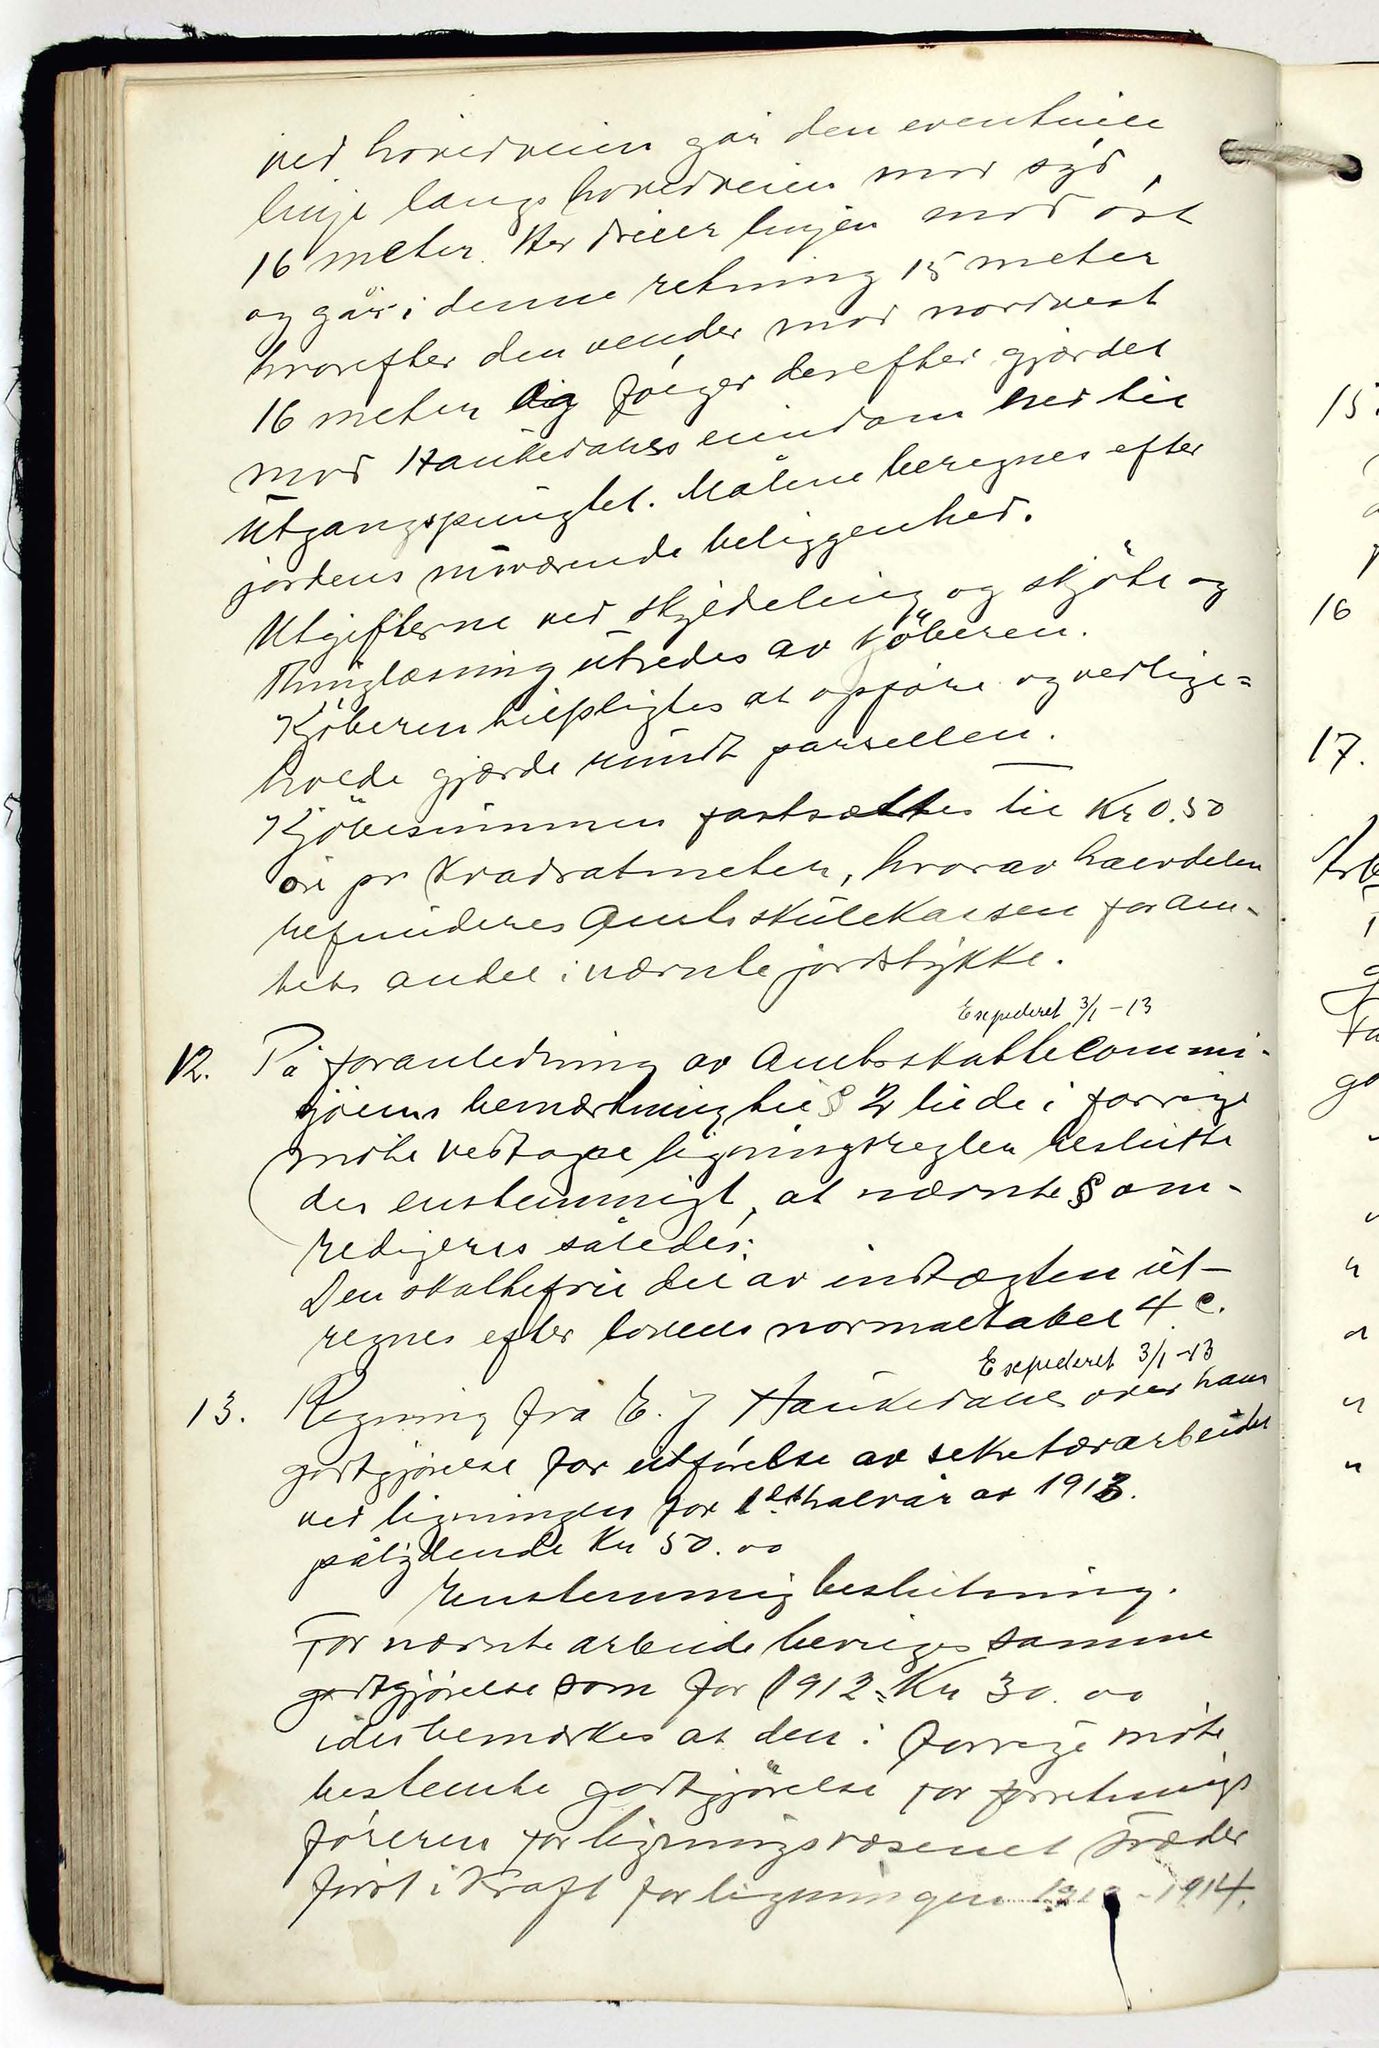 ved hovedveien går den eventuelle
linje langs hovedveien mod syd
16 meter. Her dreier linjen mod øst
og går i denne retning 15 meter
hvorefter den vender mod nordvest
16 meter og følger derefter gjærdet
mod Haukedals eiendom ned til
Utgangspungtet. Målene beregnes efter
jordens nuværende beliggenhed.
Utgifterne ved skyldeling og skjöte og
Thinglæsning utredes av kjöberen.
Kjöberen tilpligtes at opføre og vedlige=
holde gjærde rundt parsellen.
Kjöbesummen fastsættes til Kr 0.50
øre pr Kvadratmeter, hvorav halvdelen
refunderes Amtsskulekassen for am-
tets andel i nævnte jordstykke.
Expederet 3/1 - 13
12. På foranledning av Amtsskattecommi-
sjonens bemærkning til § 2 til de i forrige
møte vedtagne ligningsregler beslutte
des enstemmigt, at nævnte § om-
redigeres således:
Den skattefrie del av indtægten ut-
regnes efter lovens normaltabel 4 c.
Expederet 3/1 - 13
13. Regning fra E. J Haukedal over hans
godtgjørelse for utførelse av sekretærarbeidet
ved ligningen for 1ste halvår av 1913.
pålydende Kr 50.00
Enstemmig beslutning.
For nævnte arbeide beviges samme
godtgjørelse som for 1912 = Kr 30.00
idet bemærkes at den i forrige møte
bestemte godtgjörelse for forretnings
føreren for ligningsvæsenet træder
først i Kraft for ligningen 1913 - 1914.
15.
16
17.